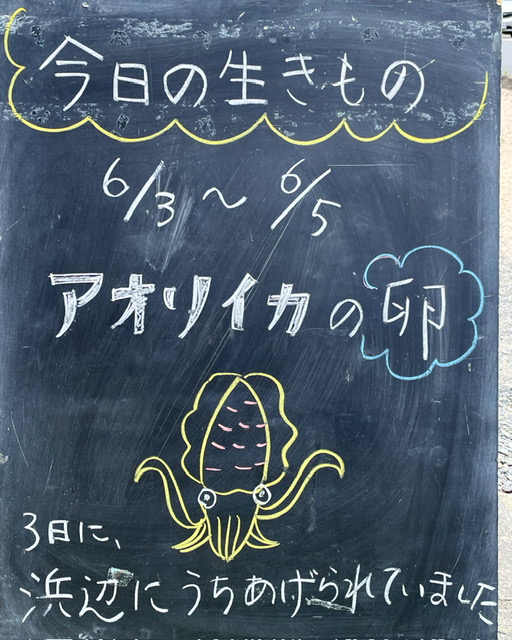 今日の生きもの
6/3〜6/5
アオリイカの卵
3日に、
浜辺にうちあげられていました